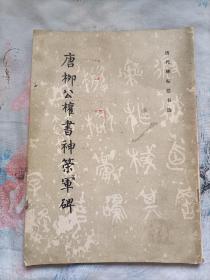 历代碑帖法书选
唐柳公權書神策軍碑